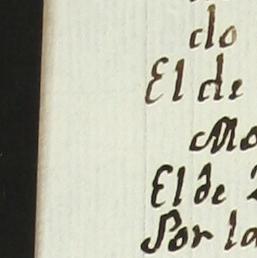 do
El de
Mo
El de 2
Por la